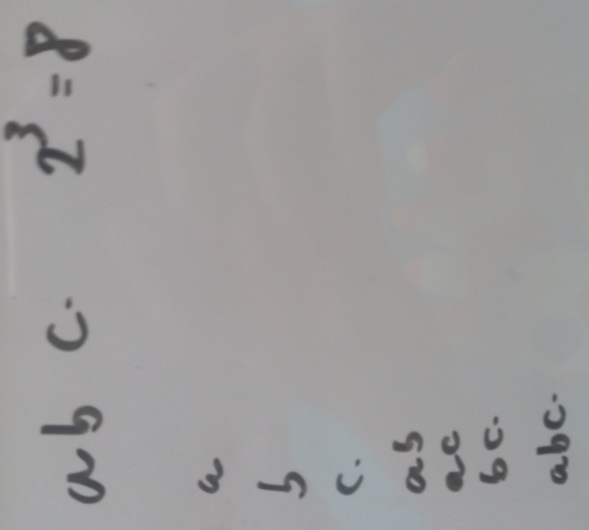 a b c. 2³ = 8
a
b
c.
ab
ac
bc.
abc.